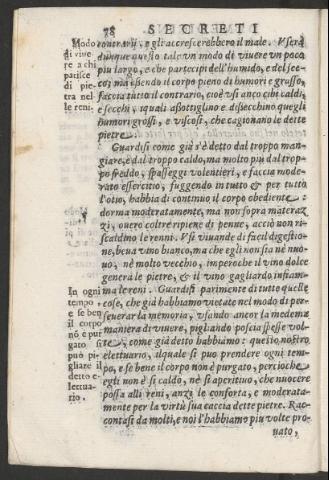 78 SECRETI
Modo
di vive
re a chi
patisce
di pie-
tra nel-
le reni.
contrarij, e gli accrescerebbero il male. Userà
dunque questo tale un modo di vivere un poco
piu largo, e che partecipi dell'humido, e del sec-
co; ma essendo il corpo pieno di humori e grosso,
faccia tutto il contrario, cioè usi anco cibi caldi,
e secchi, i quali assottiglino e dissecchino quegli
humori grossi, e viscosi, che cagionano le dette
pietre.
Guardisi come già s'è detto dal troppo man-
giare, è dal troppo caldo, ma molto piu dal trop-
po freddo, spasseggi volentieri, e faccia mode-
rato essercitio, fuggendo in tutto & per tutto
l'otio, habbia di continuo il corpo obediente:
dorma moderatamente, ma non sopra mataraz
zi, overo coltre ripiene di penne, acciò non ri-
scaldino le renni. Usi vivande di facil digestio-
ne, beva vino bianco, ma che egli non sia nè nuo-
vo, nè molto vecchio, imperoche il vino dolce
genera le pietre, & il vino gagliardo infiam-
ma le reni. Guardisi parimente di tutte quelle
cose, che già habbiamo vietate nel modo di per-
In ogni
tempo,
e se ben
il corpo
nō è pur
gato si
può pi-
gliare il
detto e-
lettua-
rio.
severar la memoria, usando ancor la medema
maniera di vivere, pigliando poscia spesse vol-
te, come già detto habbiamo: questo nostro
elettuario, al quale si puo prendere ogni tem-
po, e se bene il corpo non è purgato, percioche
egli non è sì caldo, nè sì aperitivo, che nuocere
possa alli reni, anzi le conforta, e moderata-
mente per la virtù sua caccia dette pietre. Rac
contasi da molti, e noi l'habbiamo piu volte pro-
vato,